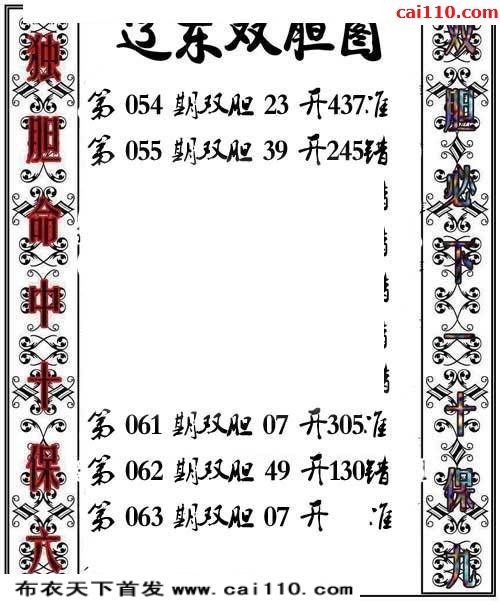 彩吧论坛
cai110.com
辽东双胆图
独胆命中十保六
双胆必下一十保九
第 054 期双胆 23 开437准
第 055 期双胆 39 开245错
错
错
错
错
错
第 061 期双胆 07 开305准
第 062 期双胆 49 开130错
第 063 期双胆 07 开 准
布衣天下首发 www.cai110.com